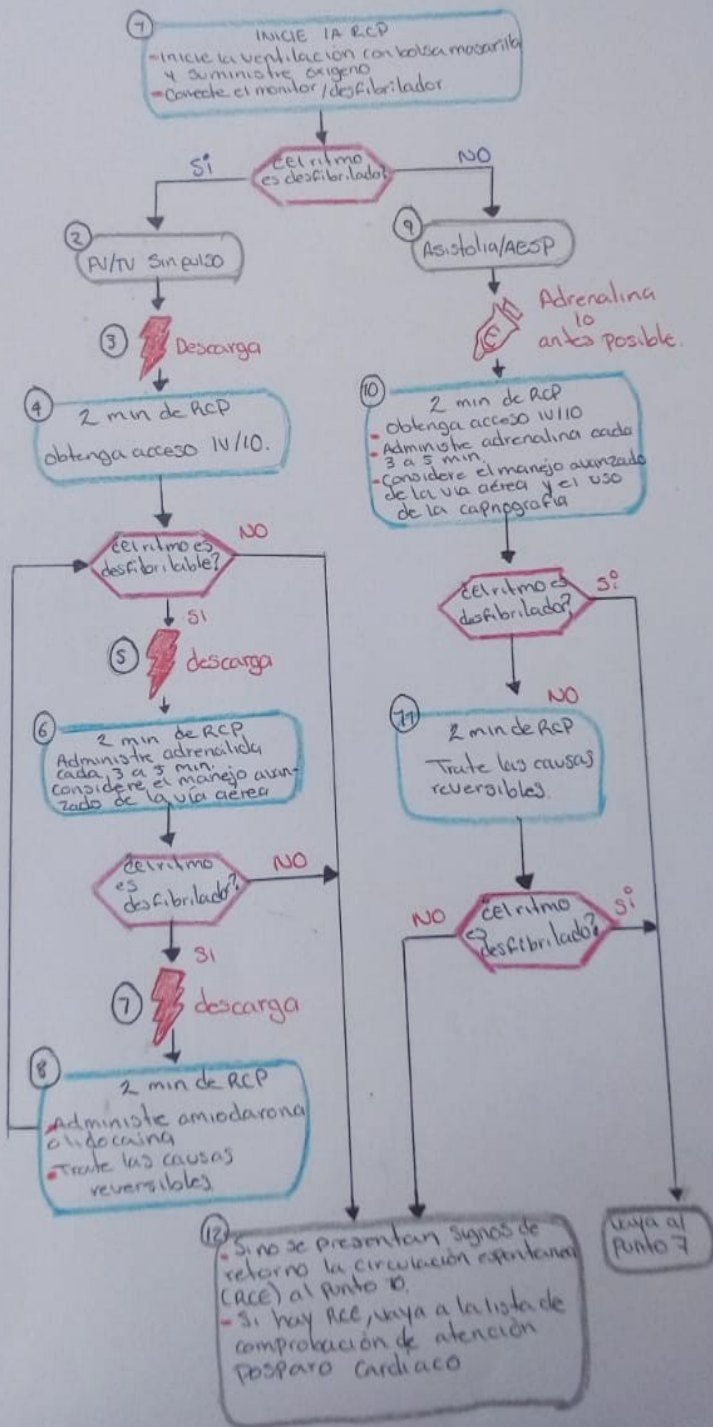 1
INICIE LA RCP
- Inicie la ventilación con bolsa mascarilla
y suministre oxigeno
- Conecte el monitor/desfibrilador
¿el ritmo
es desfibrilado?
Si
NO
2
FV/TV Sin pulso
3
Descarga
4
2 min de RCP
obtenga acceso IV/IO.
¿el ritmo es
desfibrilable?
NO
SI
5
descarga
6
2 min de RCP
Administre adrenalida
cada, 3 a 5 min.
considere el manejo avan-
zado de la vía aérea
¿el ritmo
es
desfibrilado?
NO
SI
7
descarga
8
2 min de RCP
- Administre amiodarona
o lidocaina
- Trate las causas
reversibles
9
Asistolia/AESP
Adrenalina
lo
antes posible.
10
2 min de RCP
- obtenga acceso IV/IO
- Administre adrenalina cada
3 a 5 min.
- Considere el manejo avanzado
de la via aérea y el uso
de la capnografia
¿el ritmo es
desfibrilado?
Si
NO
11
2 min de RCP
Trate las causas
reversibles.
¿el ritmo
es
desfibrilado?
NO
Si
12
- Si no se presentan signos de
retorno la circulación espontanea
(RCE) al punto 10.
- Si hay RCE, vaya a la lista de
comprobación de atención
posparo cardiaco
vaya al
Punto 7